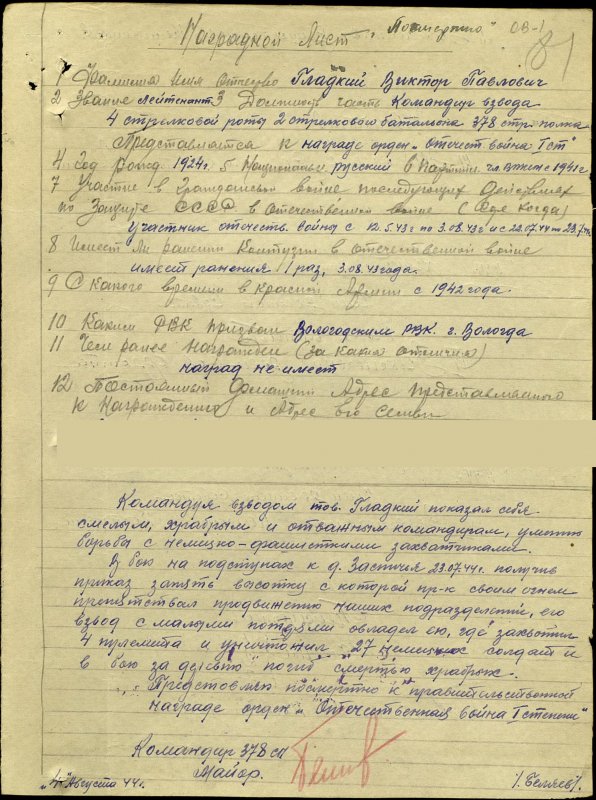 Наградной Лист „Посмертно"
1 Фамилия Имя Отчество Гладкий Виктор Павлович
2 Звание лейтенант 3 Должность часть Командир взвода
4 стрелковой роты 2 стрелкового батальона 378 стр. полка
Представляется к награде орден „Отечест война I ст"
4 Год рожд. 1924г. 5 русский в чл. ВЛКСМ с 1941г
7 Участие в Гражданской войне последующих действиях
по Защите СССР в Отечественной войне (где когда)
Участник отечеств. войны с 12.5.43г по 3.08.43г и с 22.07.44 по 23.7.44
8 Имеет ли ранения Контузии в отечественной войне
имеет ранения 1 раз, 3.08.43 года.
9 С какого времени в Красной Армии с 1942 года.
10 Каким РВК призван Вологодским РВК. г. Вологда
11 Чем ранее награжден (за какие отличия)
наград не имеет
12 Постоянный Домашний Адрес представленного
к Награждению и Адрес его Семьи
Командуя взводом тов. Гладкий показал себя
смелым, храбрым и отважным командирам,
борьбы с немецко-фашисткими захватчиками.
В бою на подступах к д. Застичья 23.07.44г. получив
приказ занять высотку с которой пр-к своим огнем
препятствовал продвижению наших подразделений, его
взвод с малыми потерями овладел ею, где захватил
4 пулемета и уничтожил 27 немецких солдат и
в бою за деревню погиб смертью храбрых.
Представляю посмертно к правительственной
награде орден „Отечественная война I степени"
Командир 378 сп
Майор.
/Беляев/.
„4" Августа 44г.